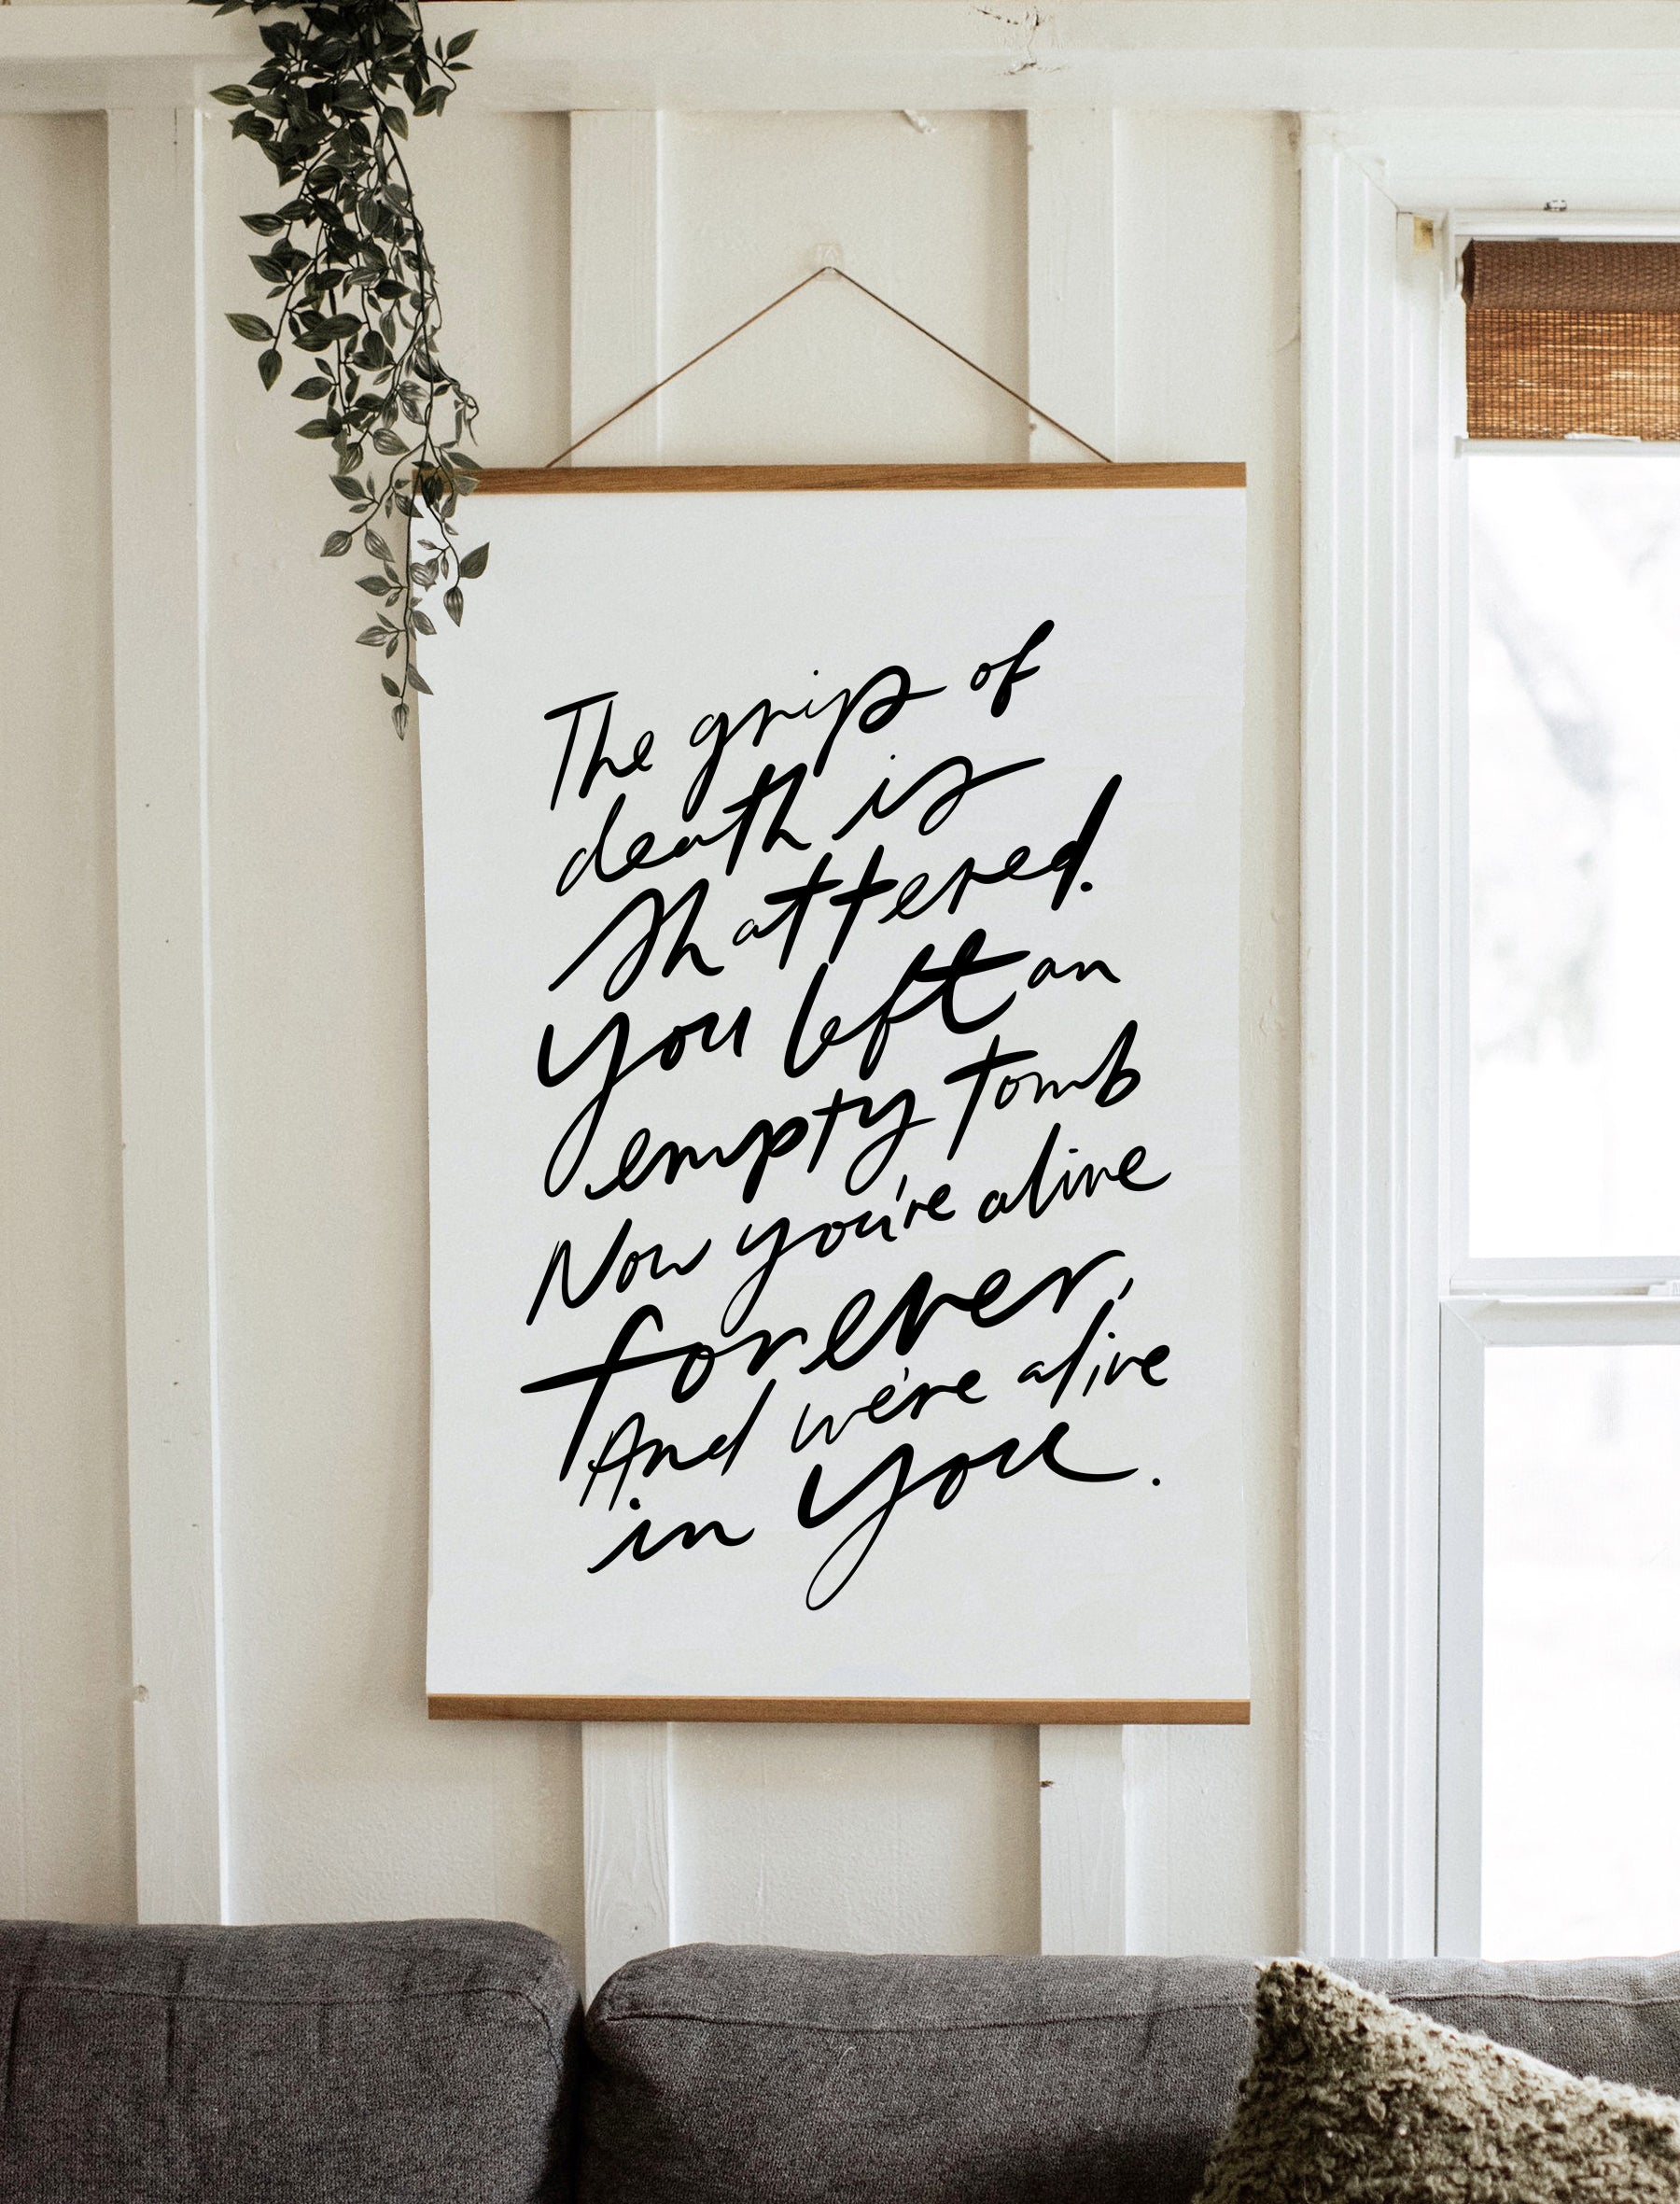 The grip of
death is
shattered.
you left an
empty tomb
Now you're alive
forever,
And we're alive
in you.